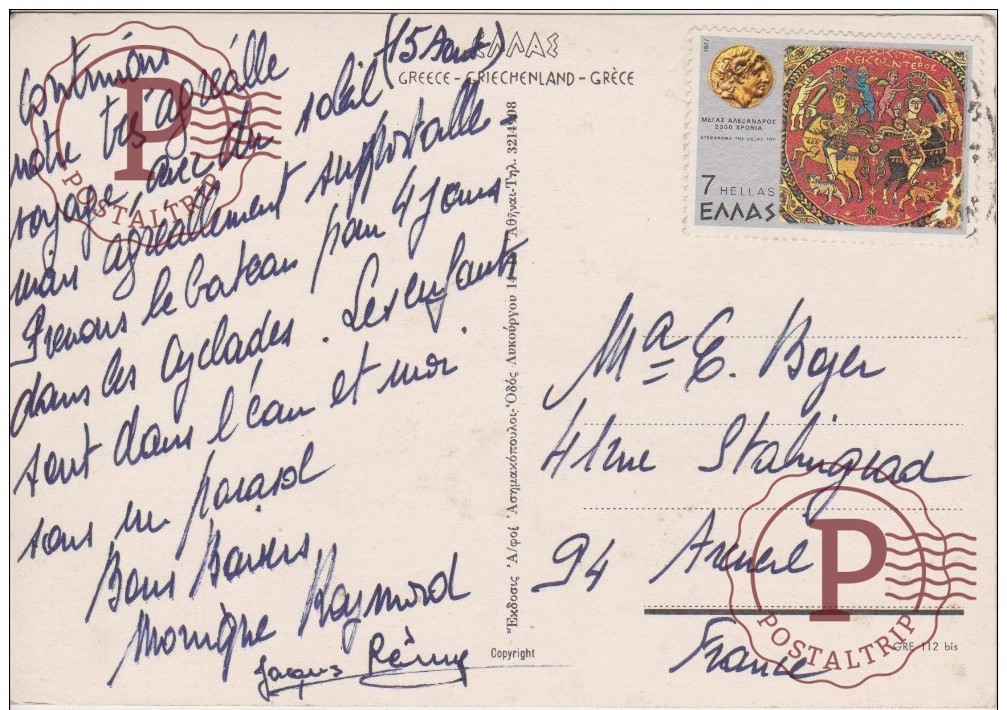 (15 Aout)
Continuons
notre très agréable
voyage, avec du soleil
mais agréablement supportable -
Prenons le bateau pour 4 jours
dans les Cyclades. Les enfants
sont dans l'eau et moi
sous un parasol
Bons Baisers
Monique Raymond
Jacques Rémy
ΕΛΛΑΣ
GREECE - GRIECHENLAND - GRÈCE
Ἔκδοσις Ἀ/φοί Ἀσημακόπουλοι - Ὁδός Λυκούργου 14 Ἀθῆναι - Τηλ. 3214808
Copyright
1977
ΜΕΓΑΣ ΑΛΕΞΑΝΔΡΟΣ
2300 ΧΡΟΝΙΑ
7 HELLAS
ΕΛΛΑΣ
Ma = C. Boyer
41 rue Stalingrad
94 Arcueil
France
GRE 112 bis
P
POSTALTRIP
P
POSTALTRIP